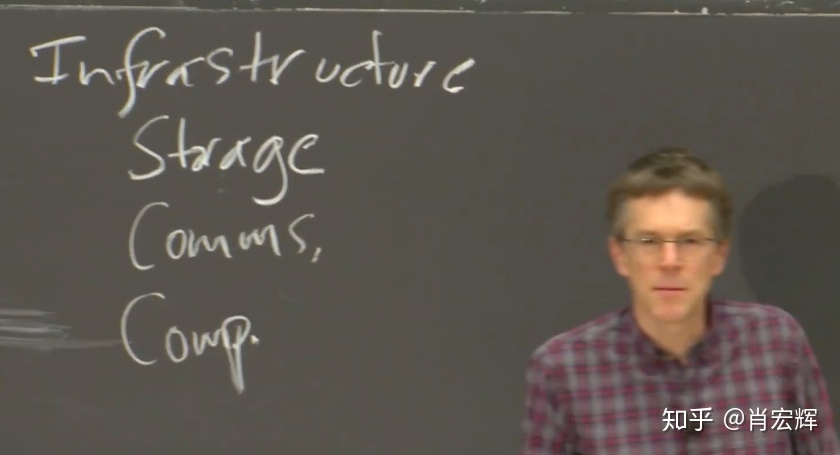 Infrastructure
Storage
Comms.
Comp.
知乎 @肖宏辉